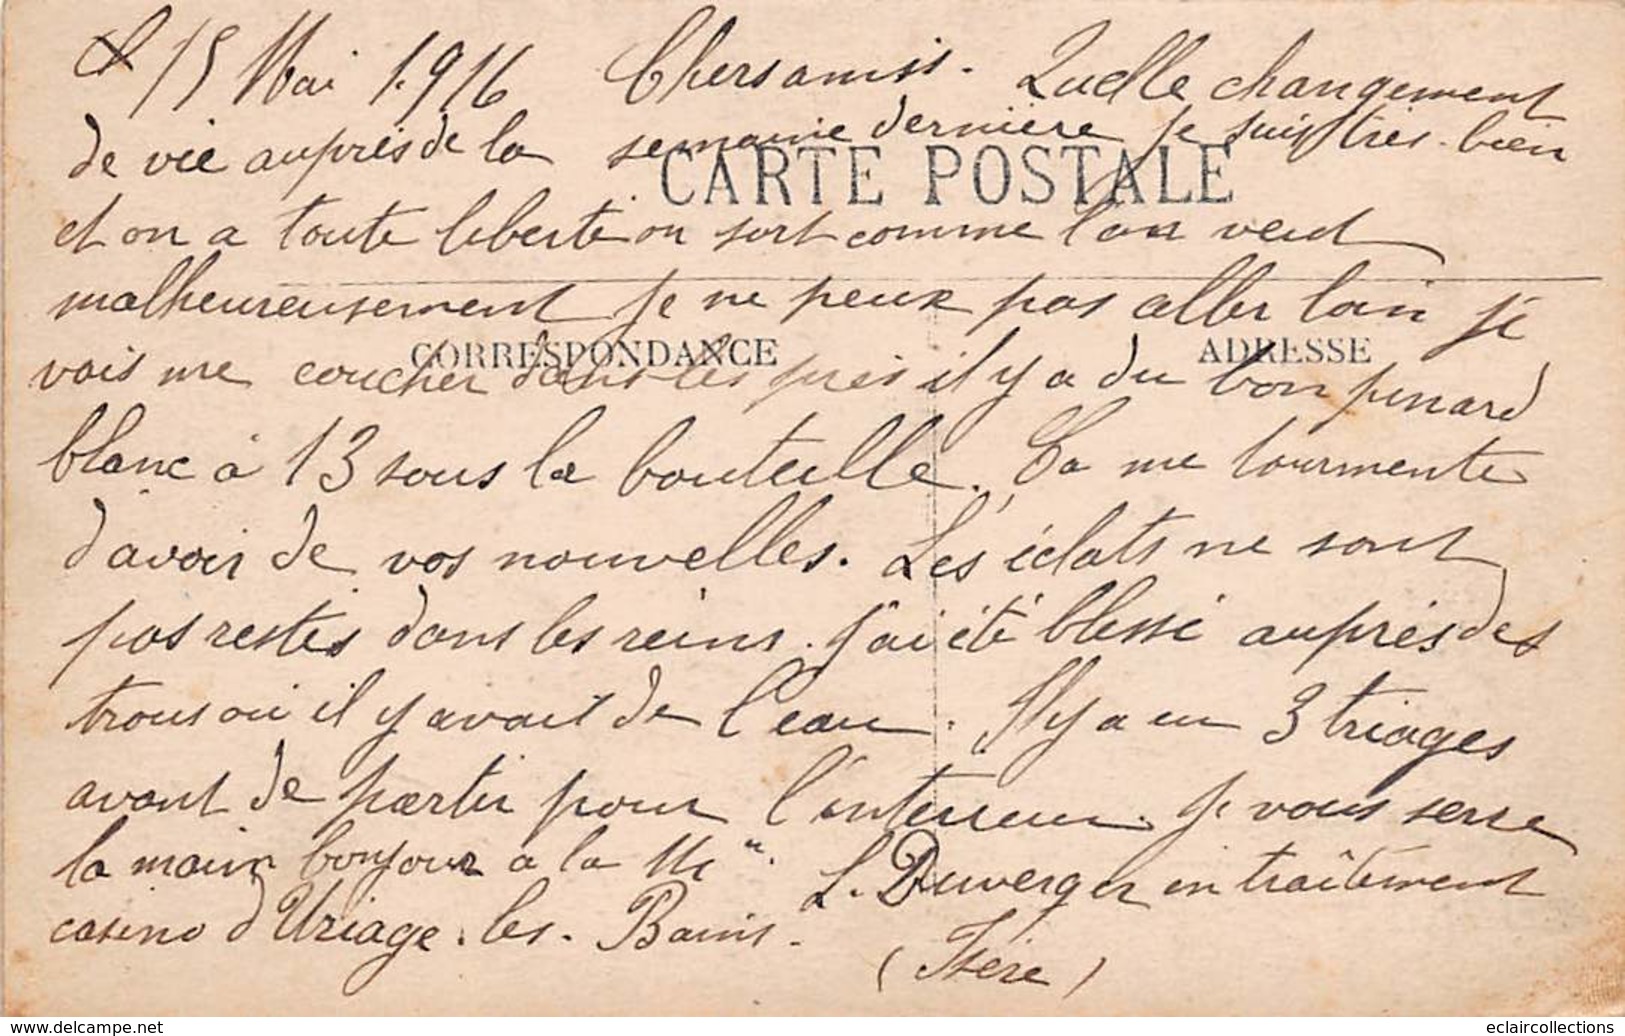 Le 15 Mai 1.916 Chers amis. Quelle changement
de vie auprès de la semaine dernière je suis très bien
CARTE POSTALE
et on a toute liberté on sort comme l'on veut
malheureusement je ne peux pas aller loin je
CORRESPONDANCE ADRESSE
vais me coucher dans les près il y a du bon pinard
blanc à 13 sous la bouteille. Ça me tourmente
d'avoir de vos nouvelles. Les éclats ne sont
pas restés dans les reins. J'ai été blessé auprès des
trous où il y avait de l'eau. Il y a eu 3 triages
avant de partir pour l'interieur. Je vous serre
la main bonjour a la M L. Duverger en traîtement
casino d'Uriage.les-Bains-
(Isère)
www.delcampe.net eclaircollections